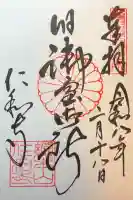 奉拝
令和六年
一月十八日
旧御室御所
仁和寺